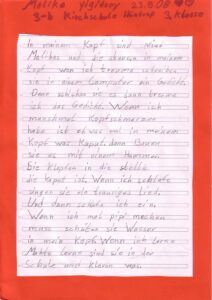 Malika 23.5.08
3-b Kirchschule 3. Klasse
In meinem Kopf sind neun
Malikas und die steuern in meinem
Kopf. Wenn ich träume schreiben
sie in einem Computer ein Gedicht.
Dann schicken sie es dann träume
ich das Gedicht. Wenn ich
manchmal Kopfschmerzen
habe ist etwas in meinem
Kopf was Kaput, dann Bauen
sie es mit einem Hammer.
Sie Klopfen in die stelle
die Kaput ist. Wenn ich schlafe
singen sie ein trauriges Lied.
Und dann schlafe ich ein.
Wenn ich mal pipi machen
muss schütten sie Wasser
in mein Kopf. Wenn ich lerne
Mathe lerne sind wie in der
Schule und